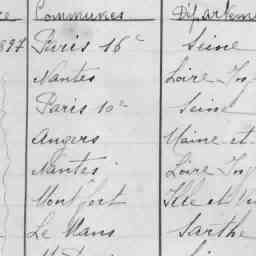 Communes Départeme
897 Paris 16e Seine
Nantes Loire Inf
Paris 10e Seine
Angers Maine et
Nantes Loire Inf
Montfort Ille et
Le Mans Sarthe